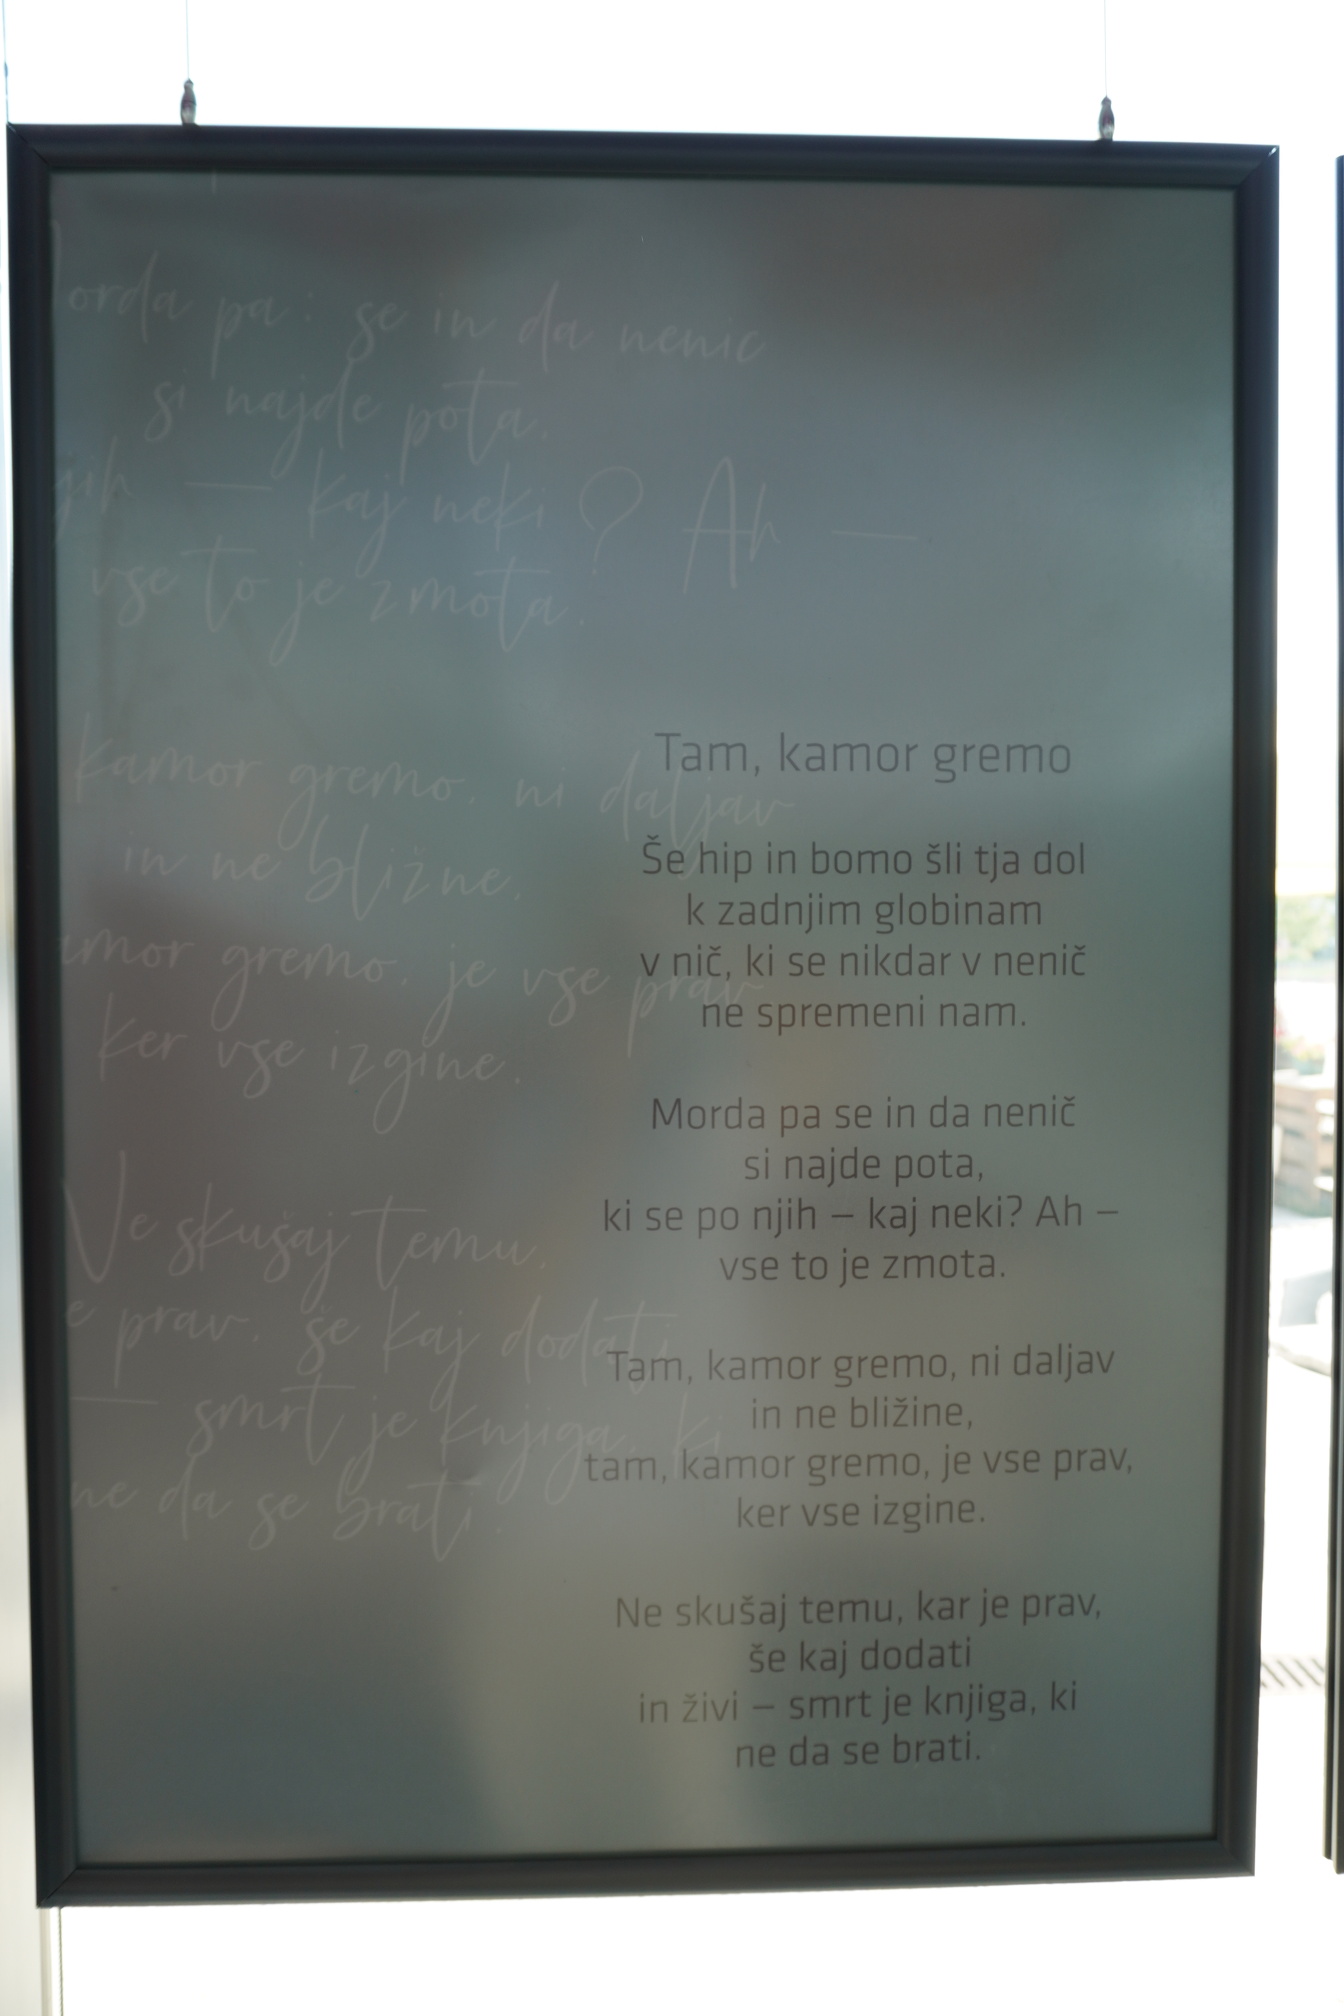 orda pa: se in da nenic
si najde pota,
jih — kaj neki? Ah —
vse to je zmota.
kamor gremo, ni daljav
in ne bližne,
amor gremo, je vse prav
ker vse izgine.
Ne skušaj temu,
e prav, še kaj dodati
— smrt je knjiga, ki
ne da se brati.
Tam, kamor gremo
Še hip in bomo šli tja dol
k zadnjim globinam
v nič, ki se nikdar v nenič
ne spremeni nam.
Morda pa se in da nenič
si najde pota,
ki se po njih – kaj neki? Ah –
vse to je zmota.
Tam, kamor gremo, ni daljav
in ne bližine,
tam, kamor gremo, je vse prav,
ker vse izgine.
Ne skušaj temu, kar je prav,
še kaj dodati
in živi – smrt je knjiga, ki
ne da se brati.